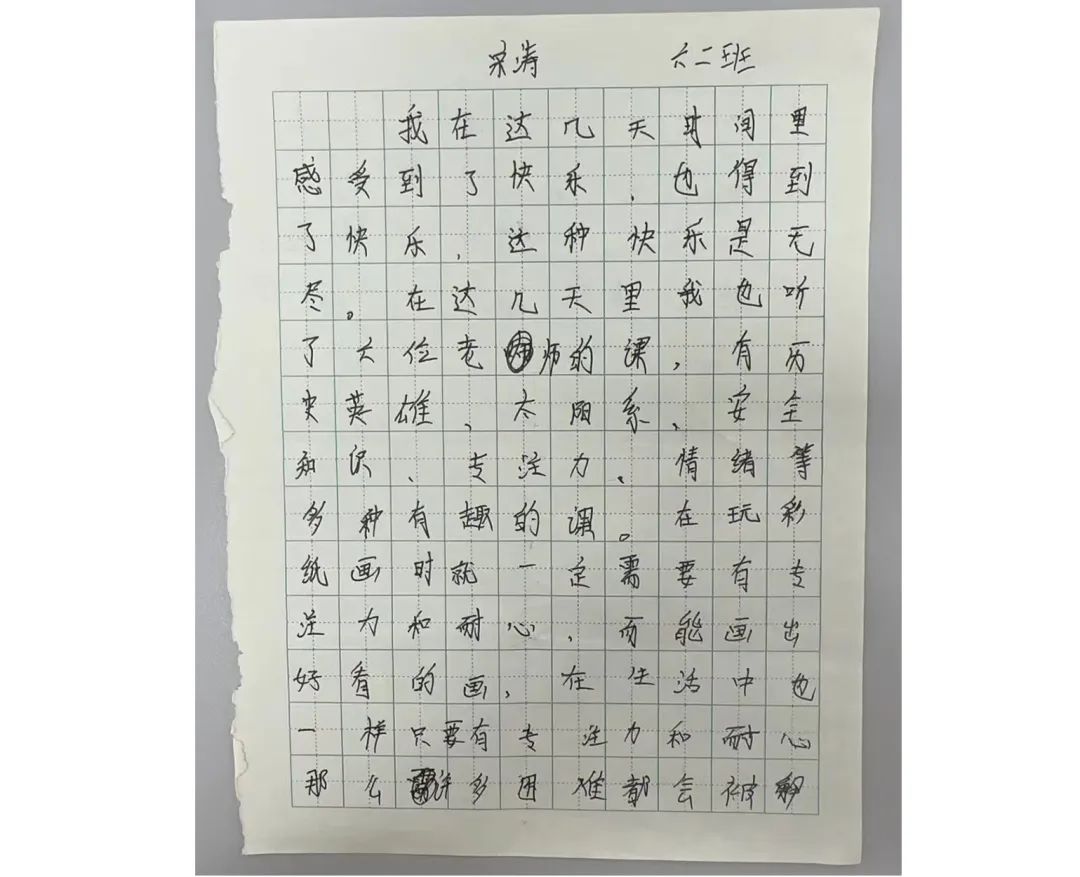 宋涛 六二班
我在这几天时间里
感受到了快乐,也得到
了快乐,这种快乐是无
尽。在这几天里我也听
了六位老师的课,有历
史英雄、太阳系、安全
知识、专注力、情绪等
多种有趣的课。在玩彩
纸画时就一定需要有专
注力和耐心,而能画出
好看的画,在生活中也
一样只要有专注力和耐心
那么许多困难都会被